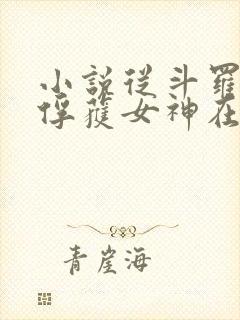 小說從斗羅
俘獲女神在
青崖海